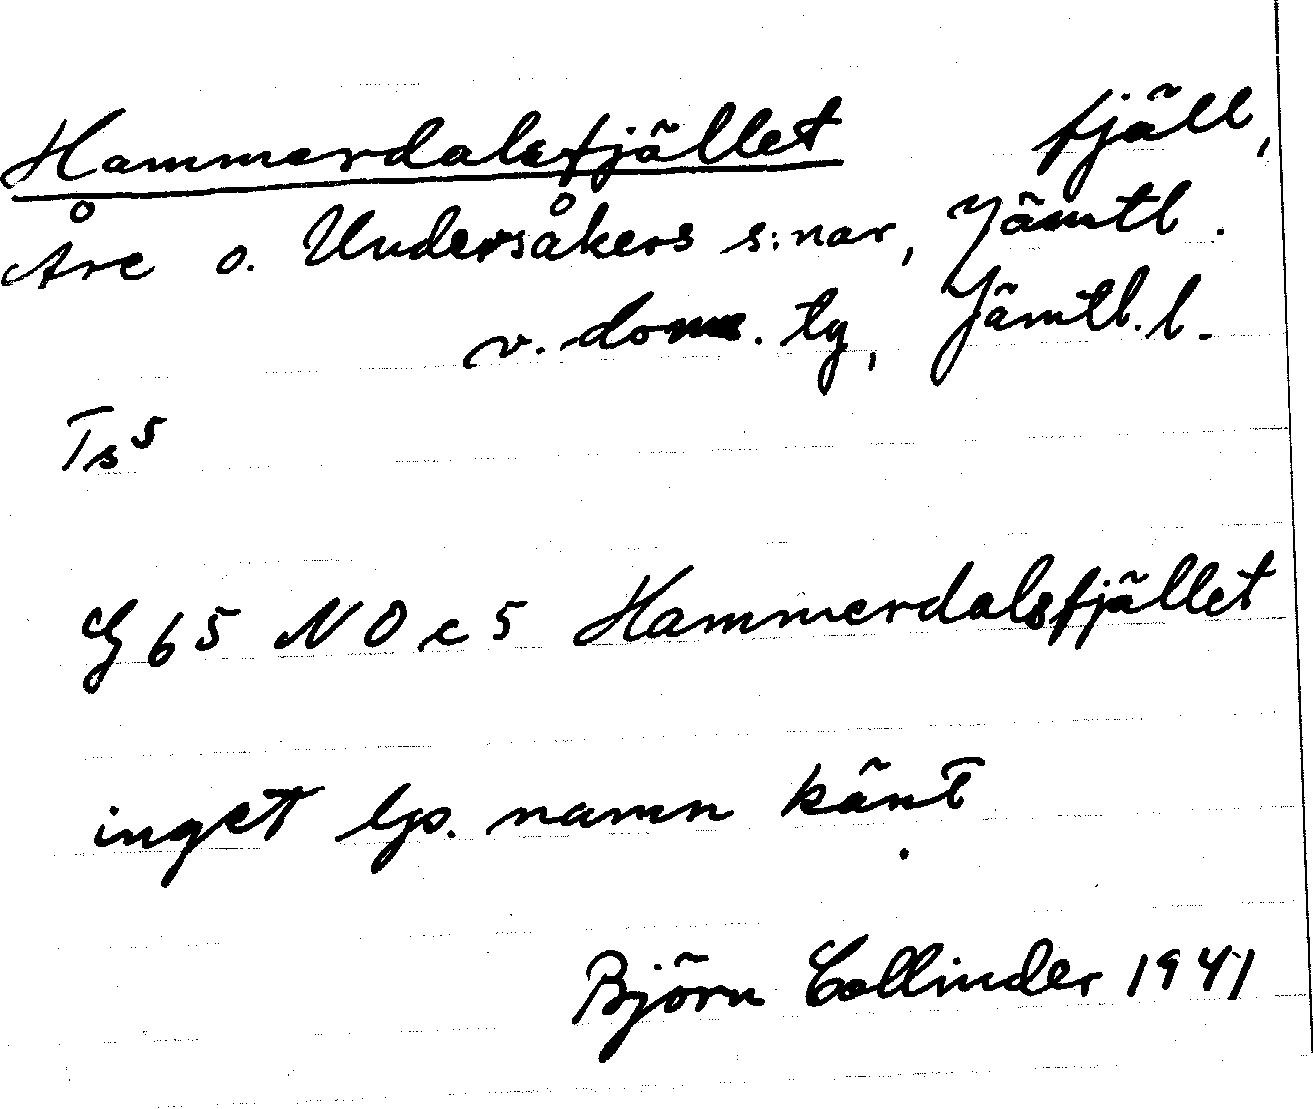 Hammerdalsfjället fjäll,
Åre o. Undersåkers s:nar, Jämtl.
v. doms. tg, Jämtl. l.
Ts 5
G 65 NO c 5 Hammerdalsfjället
inget lp. namn känt.
Björn Collinder 1941